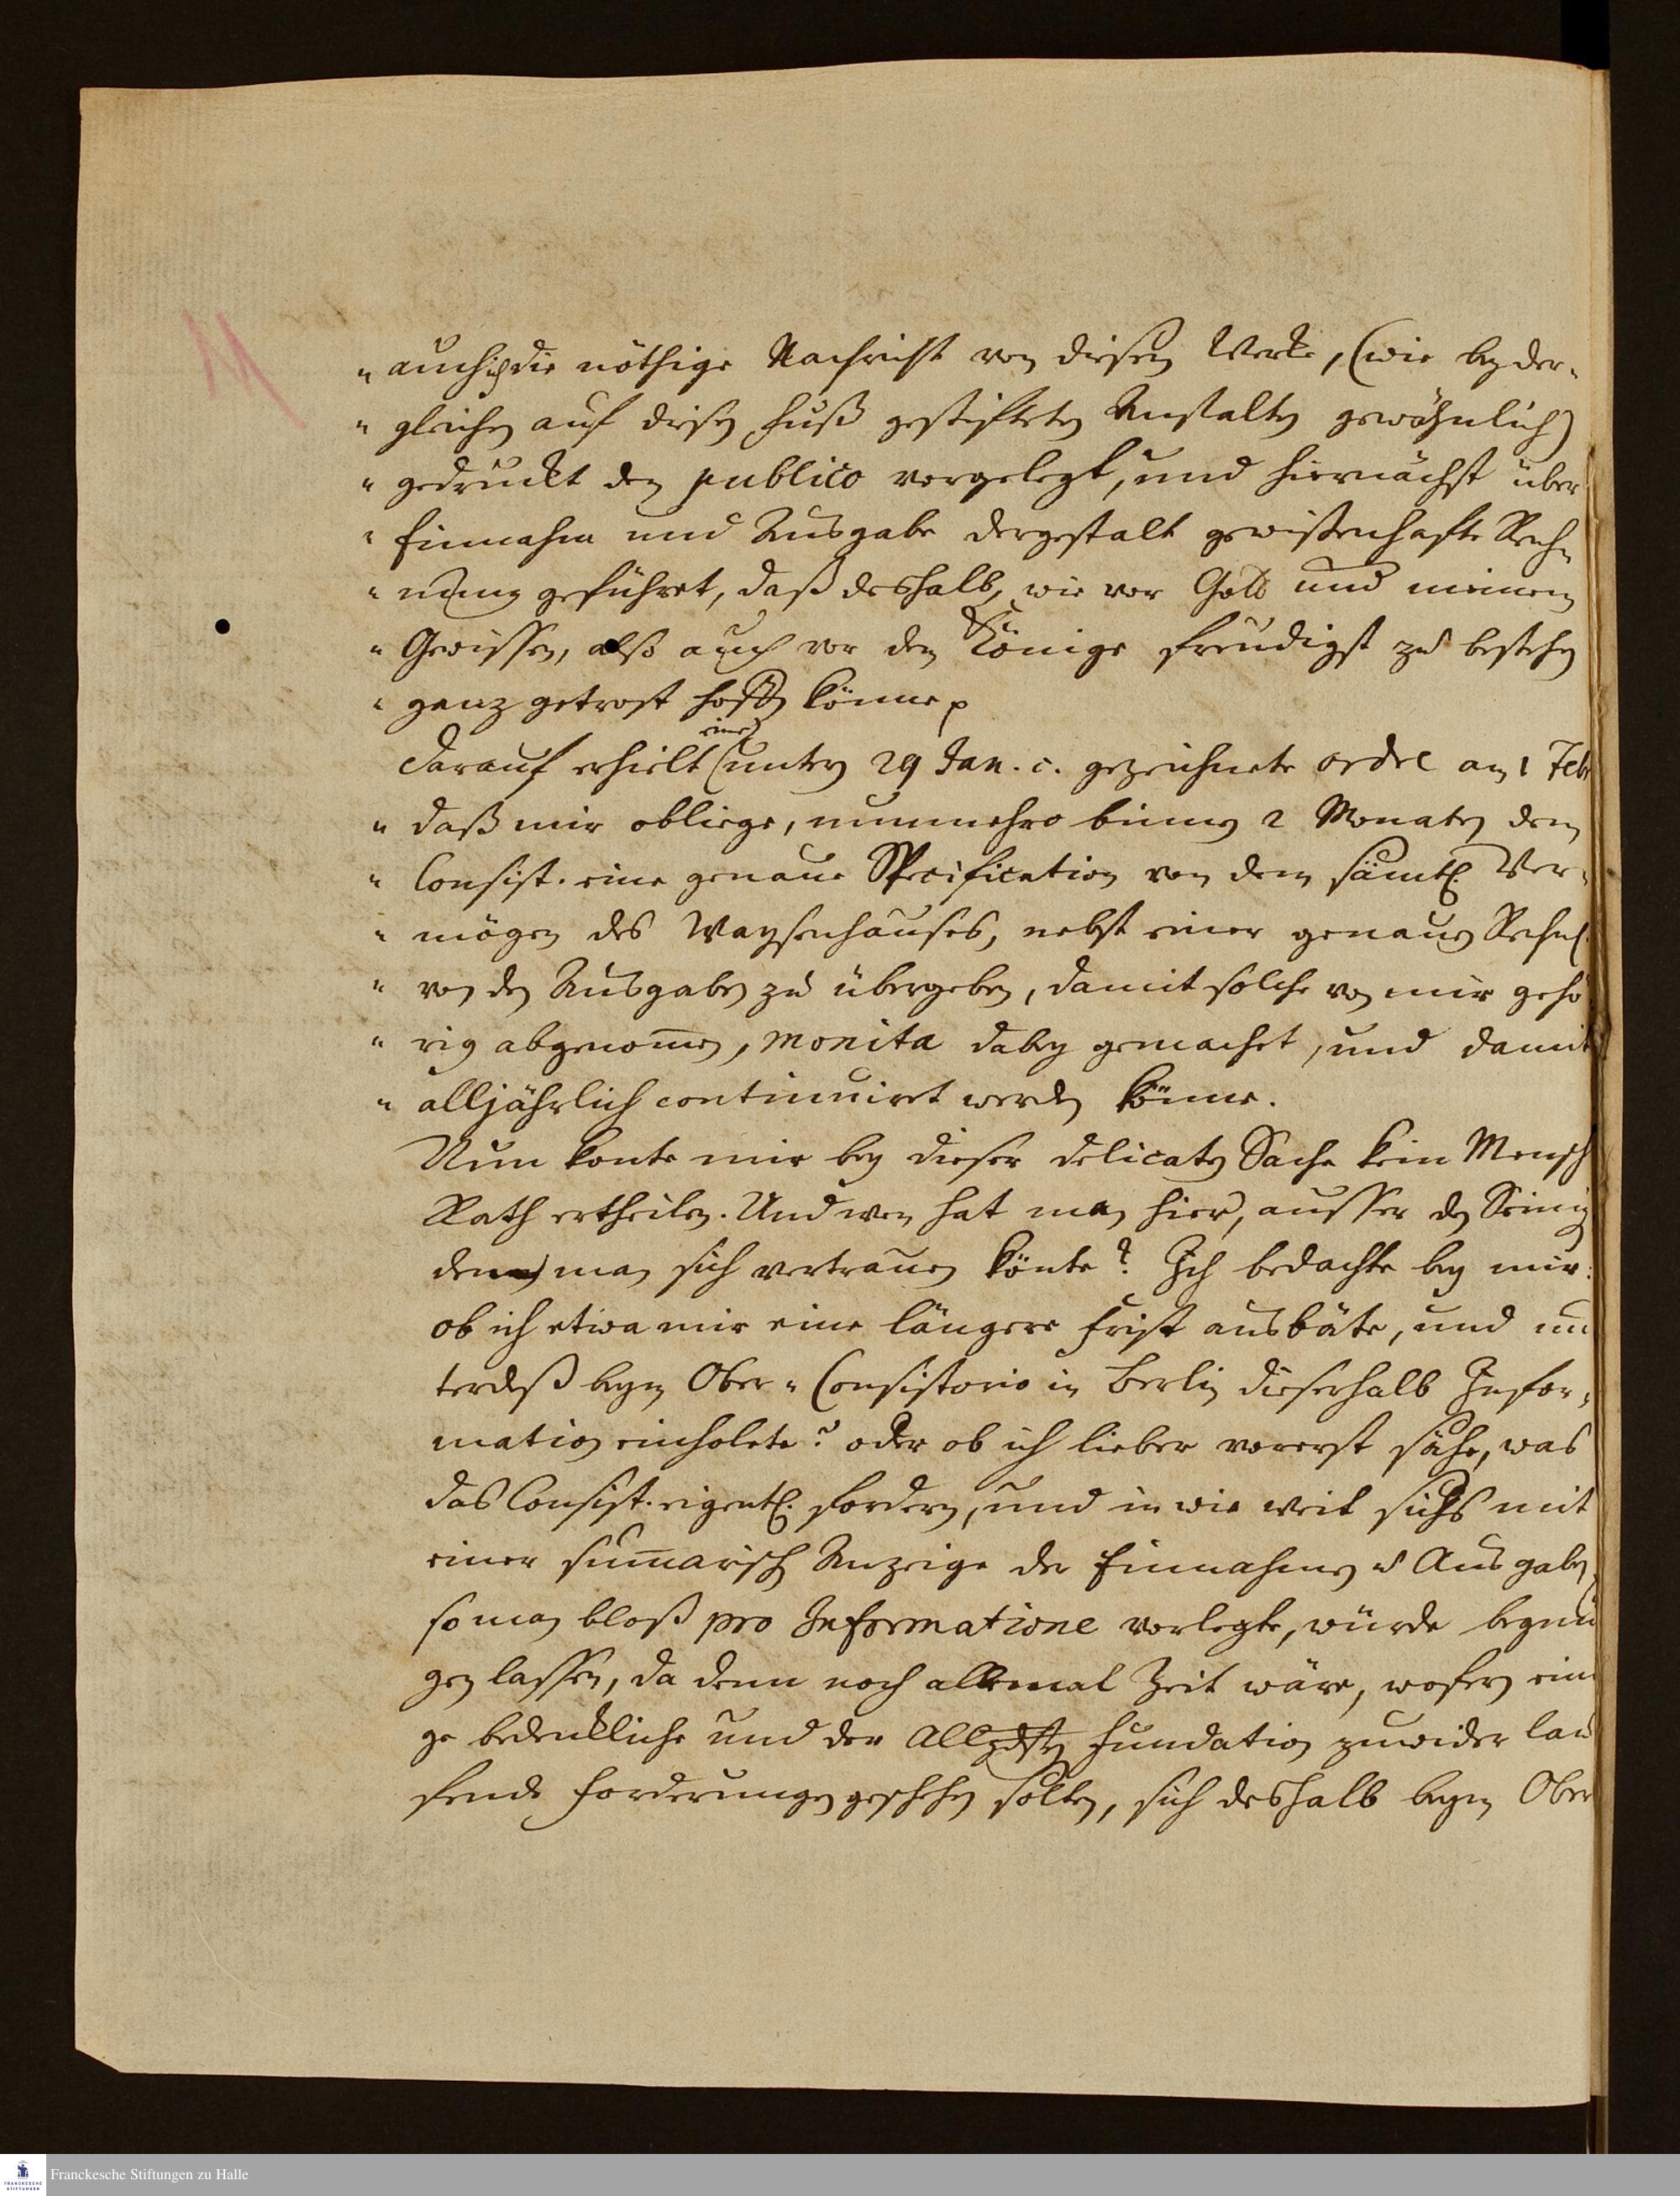 " auch ich die nöthige Nachricht von diesen Werke, (wie bey der-
" gleichen auf diesen Fuß gestifteten Anstalten gewöhnlich)
" gedruckt dem publico vorgelegt, und hiernächst über
" Einnahm und Ausgabe dergestalt gewißenhafte Rech-
" nung geführet, daß deshalb, wie vor Gott und meinem
" Gewissen, alß auch vor dem Könige freudigst zu bestehen
" ganz getrost hoffen könne p
Darauf erhielt eine unterm 29 Jan. c. gezeichnete ordre am 1 Febr
" daß mir obliege, nunmehro binnen 2 Monaten dem
" Consist. eine genaue Specification von dem sämtl. Ver-
" mögen des Waysenhauses, nebst einer genauen Rechn.
" von den Ausgaben zu übergeben, damit solche von mir gehö
" rig abgenom̄en, monita dabey gemachet, und damit
" alljährlich continuiret werden könne.
Nun konte mir bey dieser delicaten Sache kein Mensch
Rath ertheilen. Und wen hat man hier, ausser den Seinig
dem man sich vertrauen könte? Ich bedachte bey mir:
ob ich etwa mir eine längere Frist ausbäte, und un
terdeß beym Ober-Consistorio in Berlin dieserhalb Infor-
mation einholete? oder ob ich lieber vorerst sähe, was
das Consist. eigentl. fordern, und in wie weit sichs mit
einer sum̄arisch Anzeige der Einnahmen u Ausgaben
so man bloß pro Informatione vorlegte, würde begnü
gen lassen, da denn noch allemal Zeit wäre, wofern eini
ge bedenkliche und der Allgdsten Fundation zuwider lau
fende Forderungen geschehen solten, sich deshalb beym Ober
Franckesche Stiftungen zu Halle